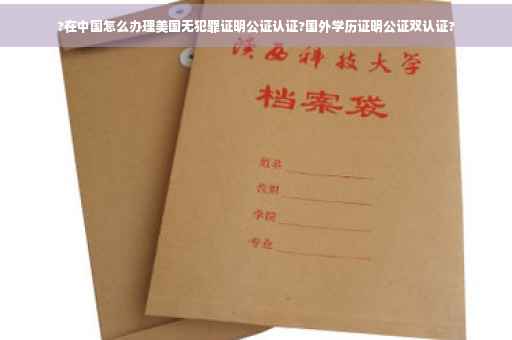 ?在中国怎么办理美国无犯罪证明公证认证?国外学历证明公证双认证?
陕西科技大学
档案袋
姓名
学院
专业